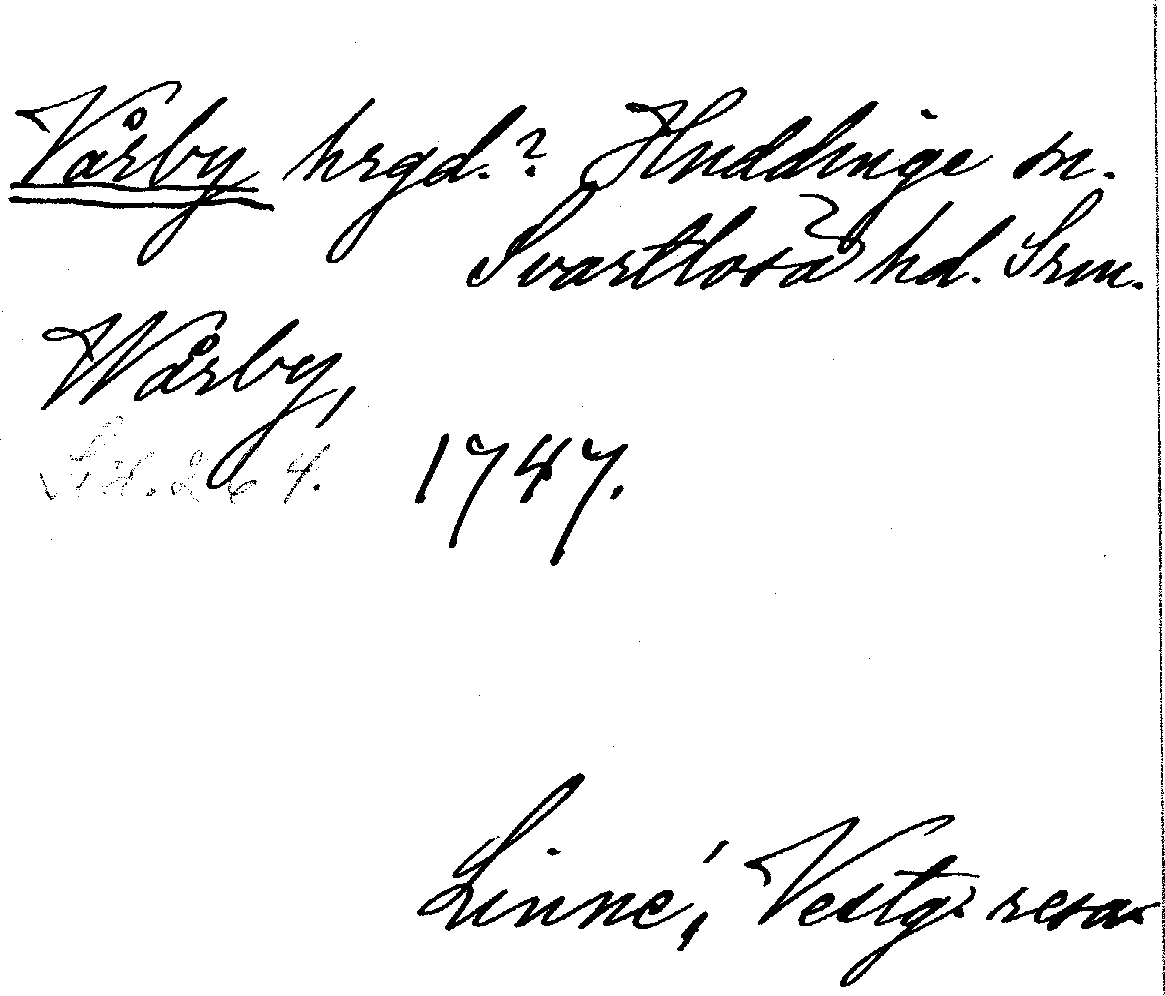 Vårby hrgd.? Huddinge sn.
Svartlösa hd. Srm.
Wårby,
1747.
Linné, Vestg. resa